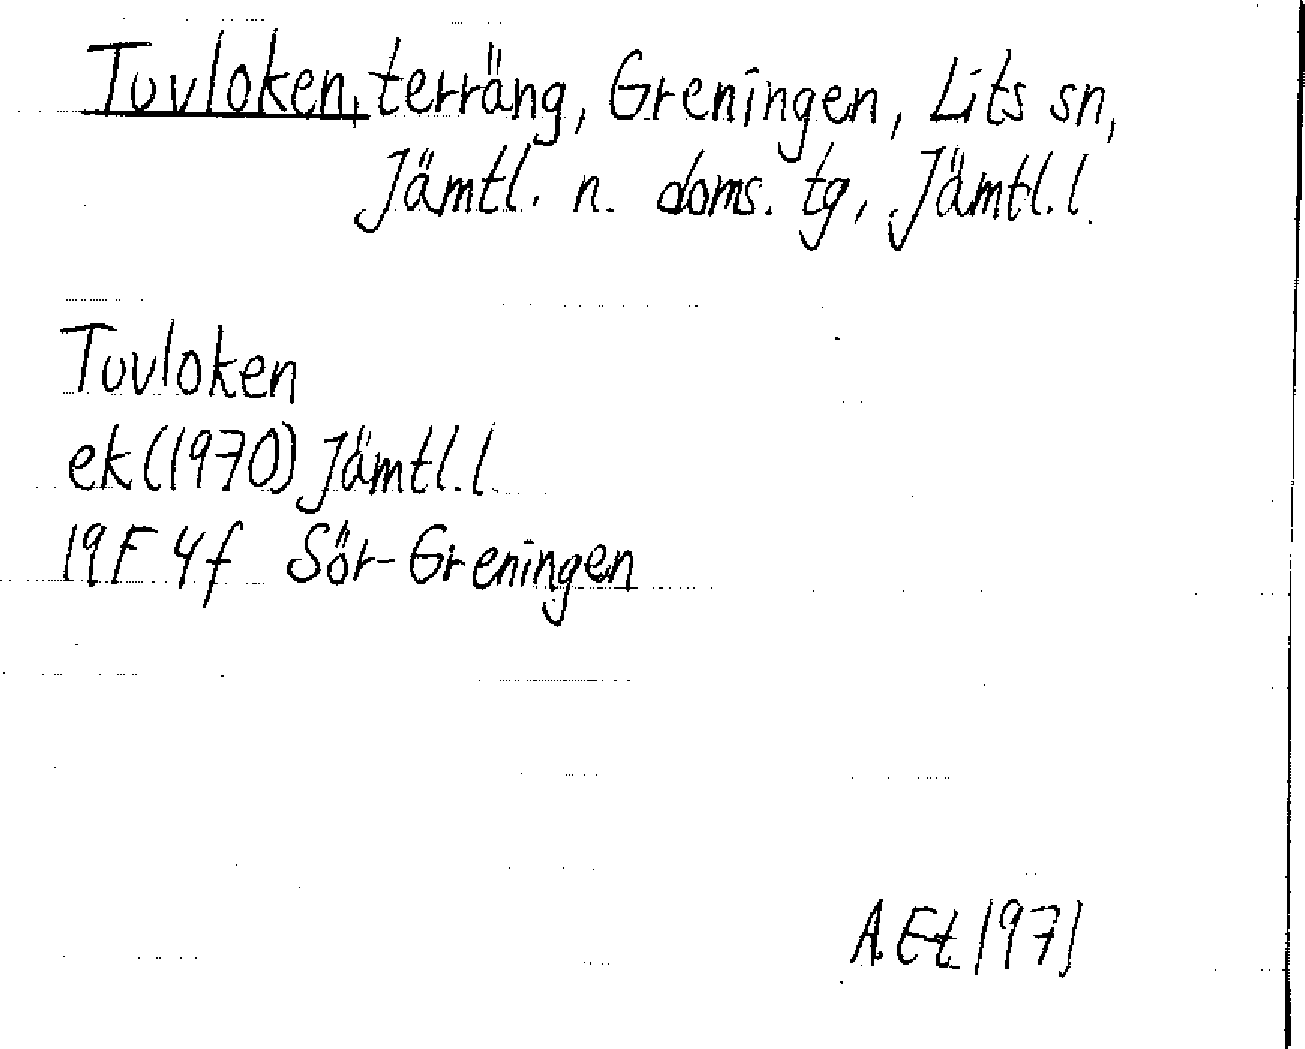 Tuvloken, terräng, Greningen, Lits sn,
Jämtl. n. doms. tg, Jämtl. l.
Tuvloken
ek (1970) Jämtl. l.
19F 4f Sör-Greningen
A. Et 1971